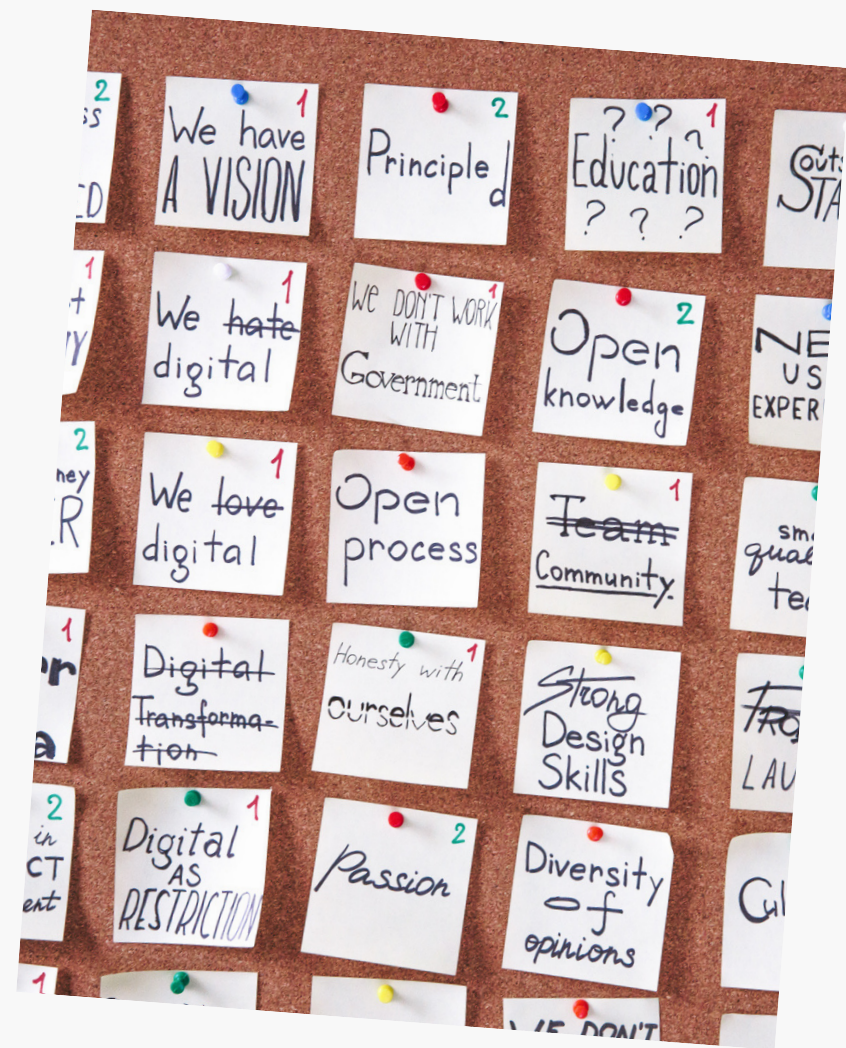 2
1
We have
A VISION
2
Principle
d
1
? ? ?
Education
? ? ?
1
1
We hate
digital
1
WE DON'T WORK
WITH
Government
2
Open
knowledge
US
EXPER
2
1
We love
digital
Open
process
1
Team
Community.
1
Digital
Transforma-
tion
1
Honesty with
ourselves
Strong
Design
Skills
2
in
CT
ent
1
Digital
AS
RESTRICTION
2
Passion
Diversity
of
opinions
1
WE DON'T